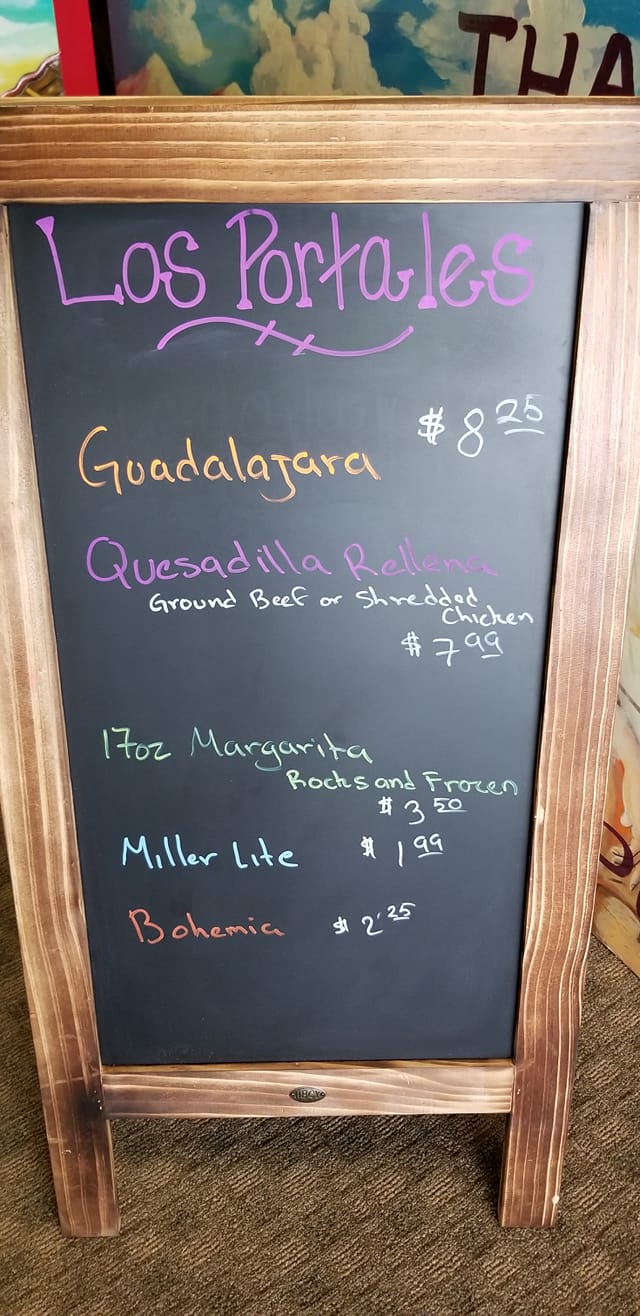 THA
Los Portales
$ 8 25
Guadalajara
Quesadilla Rellena
Ground Beef or Shredded
Chicken
$ 7 99
17oz Margarita
Rocks and Frozen
$ 3 50
Miller Lite $ 1 99
Bohemia $ 2.25